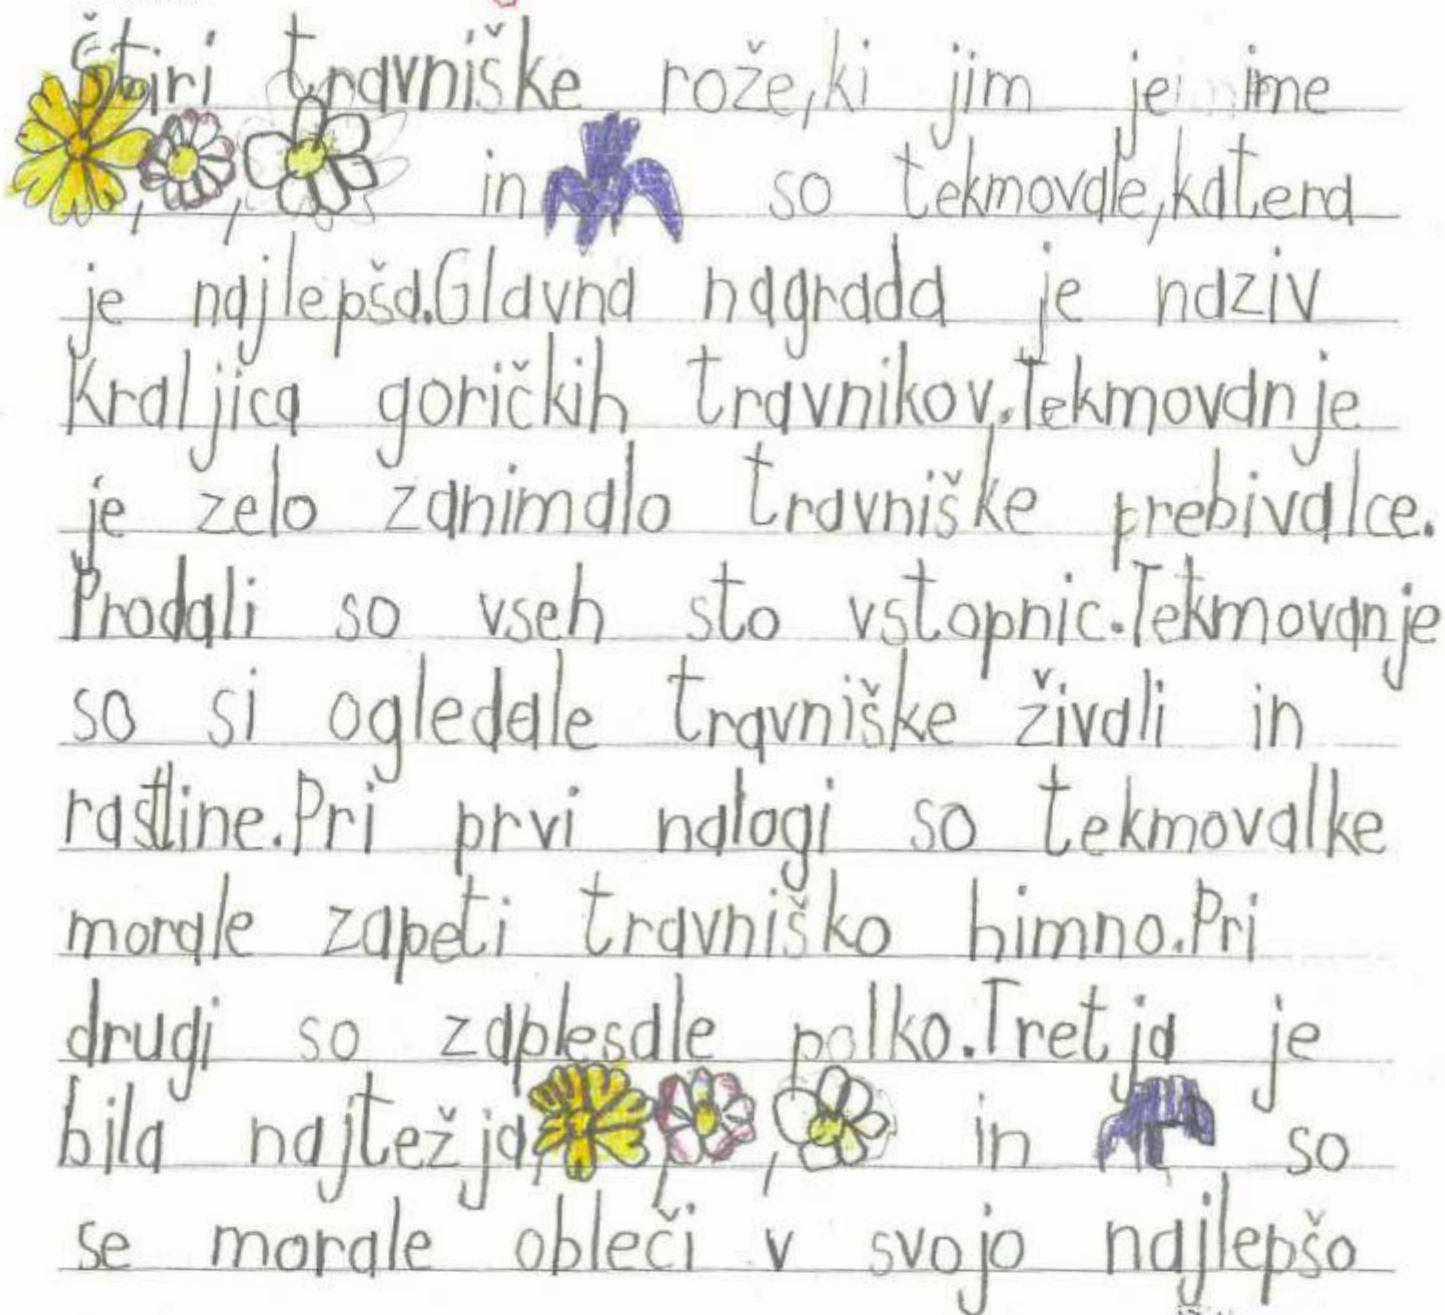 Štiri travniške rože,ki jim je ime
, , in so tekmovale,katera
je najlepša.Glavna nagrada je naziv
Kraljica goričkih travnikov.Tekmovanje
je zelo zanimalo travniške prebivalce.
Prodali so vseh sto vstopnic.Tekmovanje
so si ogledale travniške živali in
rastline.Pri prvi nalogi so tekmovalke
morale zapeti travniško himno.Pri
drugi so zaplesale polko.Tretja je
bila najtežja, , , in so
se morale obleči v svojo najlepšo